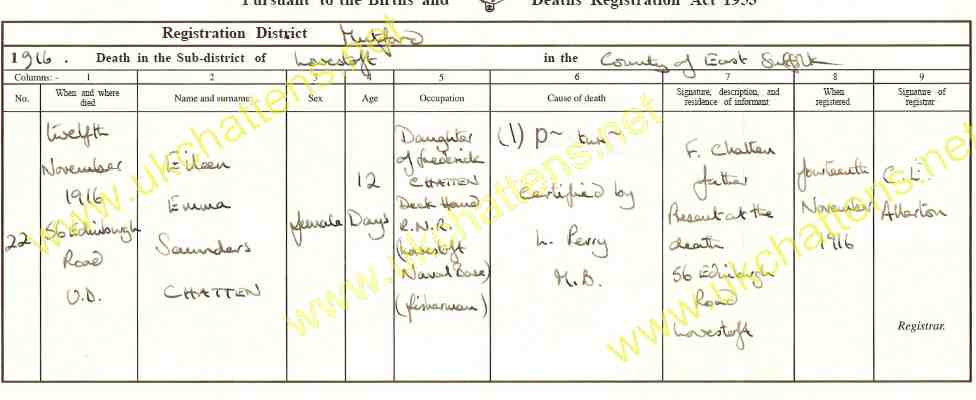 Pursuant to the Births and Deaths Registration Act 1953
Registration District Mutford
1916. Death in the Sub-district of Lowestoft in the County of East Suffolk
Columns: - 1 2 3 4 5 6 7 8 9
No. When and where died Name and surname Sex Age Occupation Cause of death Signature, description, and residence of informant When registered Signature of registrar
22
twelfth
November
1916
56 Edinburgh
Road
U.D.
Eileen
Emma
Saunders
CHATTEN
female
12
Days
Daughter
of frederick
CHATTEN
Deck Hand
R.N.R.
(Lowestoft
Naval Base)
(fisherman)
(1)
Certified by
L. Perry
M.B.
F. Chatten
father
Present at the
death
56 Edinburgh
Road
Lowestoft
fourteenth
November
1916
C. L.
Allerton
Registrar.
www.ukchattens.net
www.ukchattens.net
www.ukchattens.net